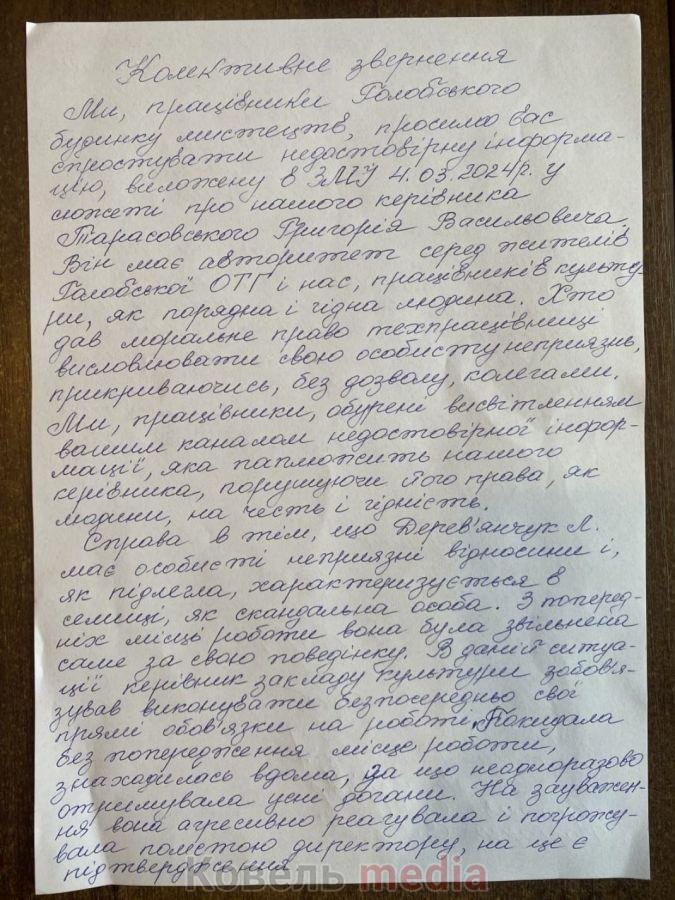 Колективне звернення
Ми, працівники Голобського
будинку мистецтв, просимо вас
спростувати недостовірну інформа-
цію, виложену в ЗМІ 4.03.2024р. у
сюжеті про нашого керівника
Тарасовського Григорія Васильовича.
Він має авторитет серед жителів
Голобської ОТГ і нас, працівників культу-
ри, як порядна і гідна людина. Хто
дав моральне право техпрацівниці
висловлювати свою особисту неприязнь,
прикриваючись, без дозволу, колегами.
Ми, працівники, обурені висвітленням
вашим каналом недостовірної інфор-
мації, яка паплюжить нашого
керівника, порушуючи його права, як
людини, на честь і гідність.
Справа в тім, що Дерев'янчук Л.
має особисті неприязні відносини і,
як підлегла, характеризується в
селищі, як скандальна особа. З поперед-
ніх місць роботи вона була звільнена
саме за свою поведінку. В даній ситуа-
ції керівник закладу культури зобов'я-
зував виконувати безпосередньо свої
прямі обов'язки на роботі. Покидала
без попередження місце роботи,
знаходилась вдома, за що неодноразово
отримувала усні догани. На зауважен-
ня вона агресивно реагувала і погрожу-
вала помстою директору, на це є
підтвердження
Ковель media